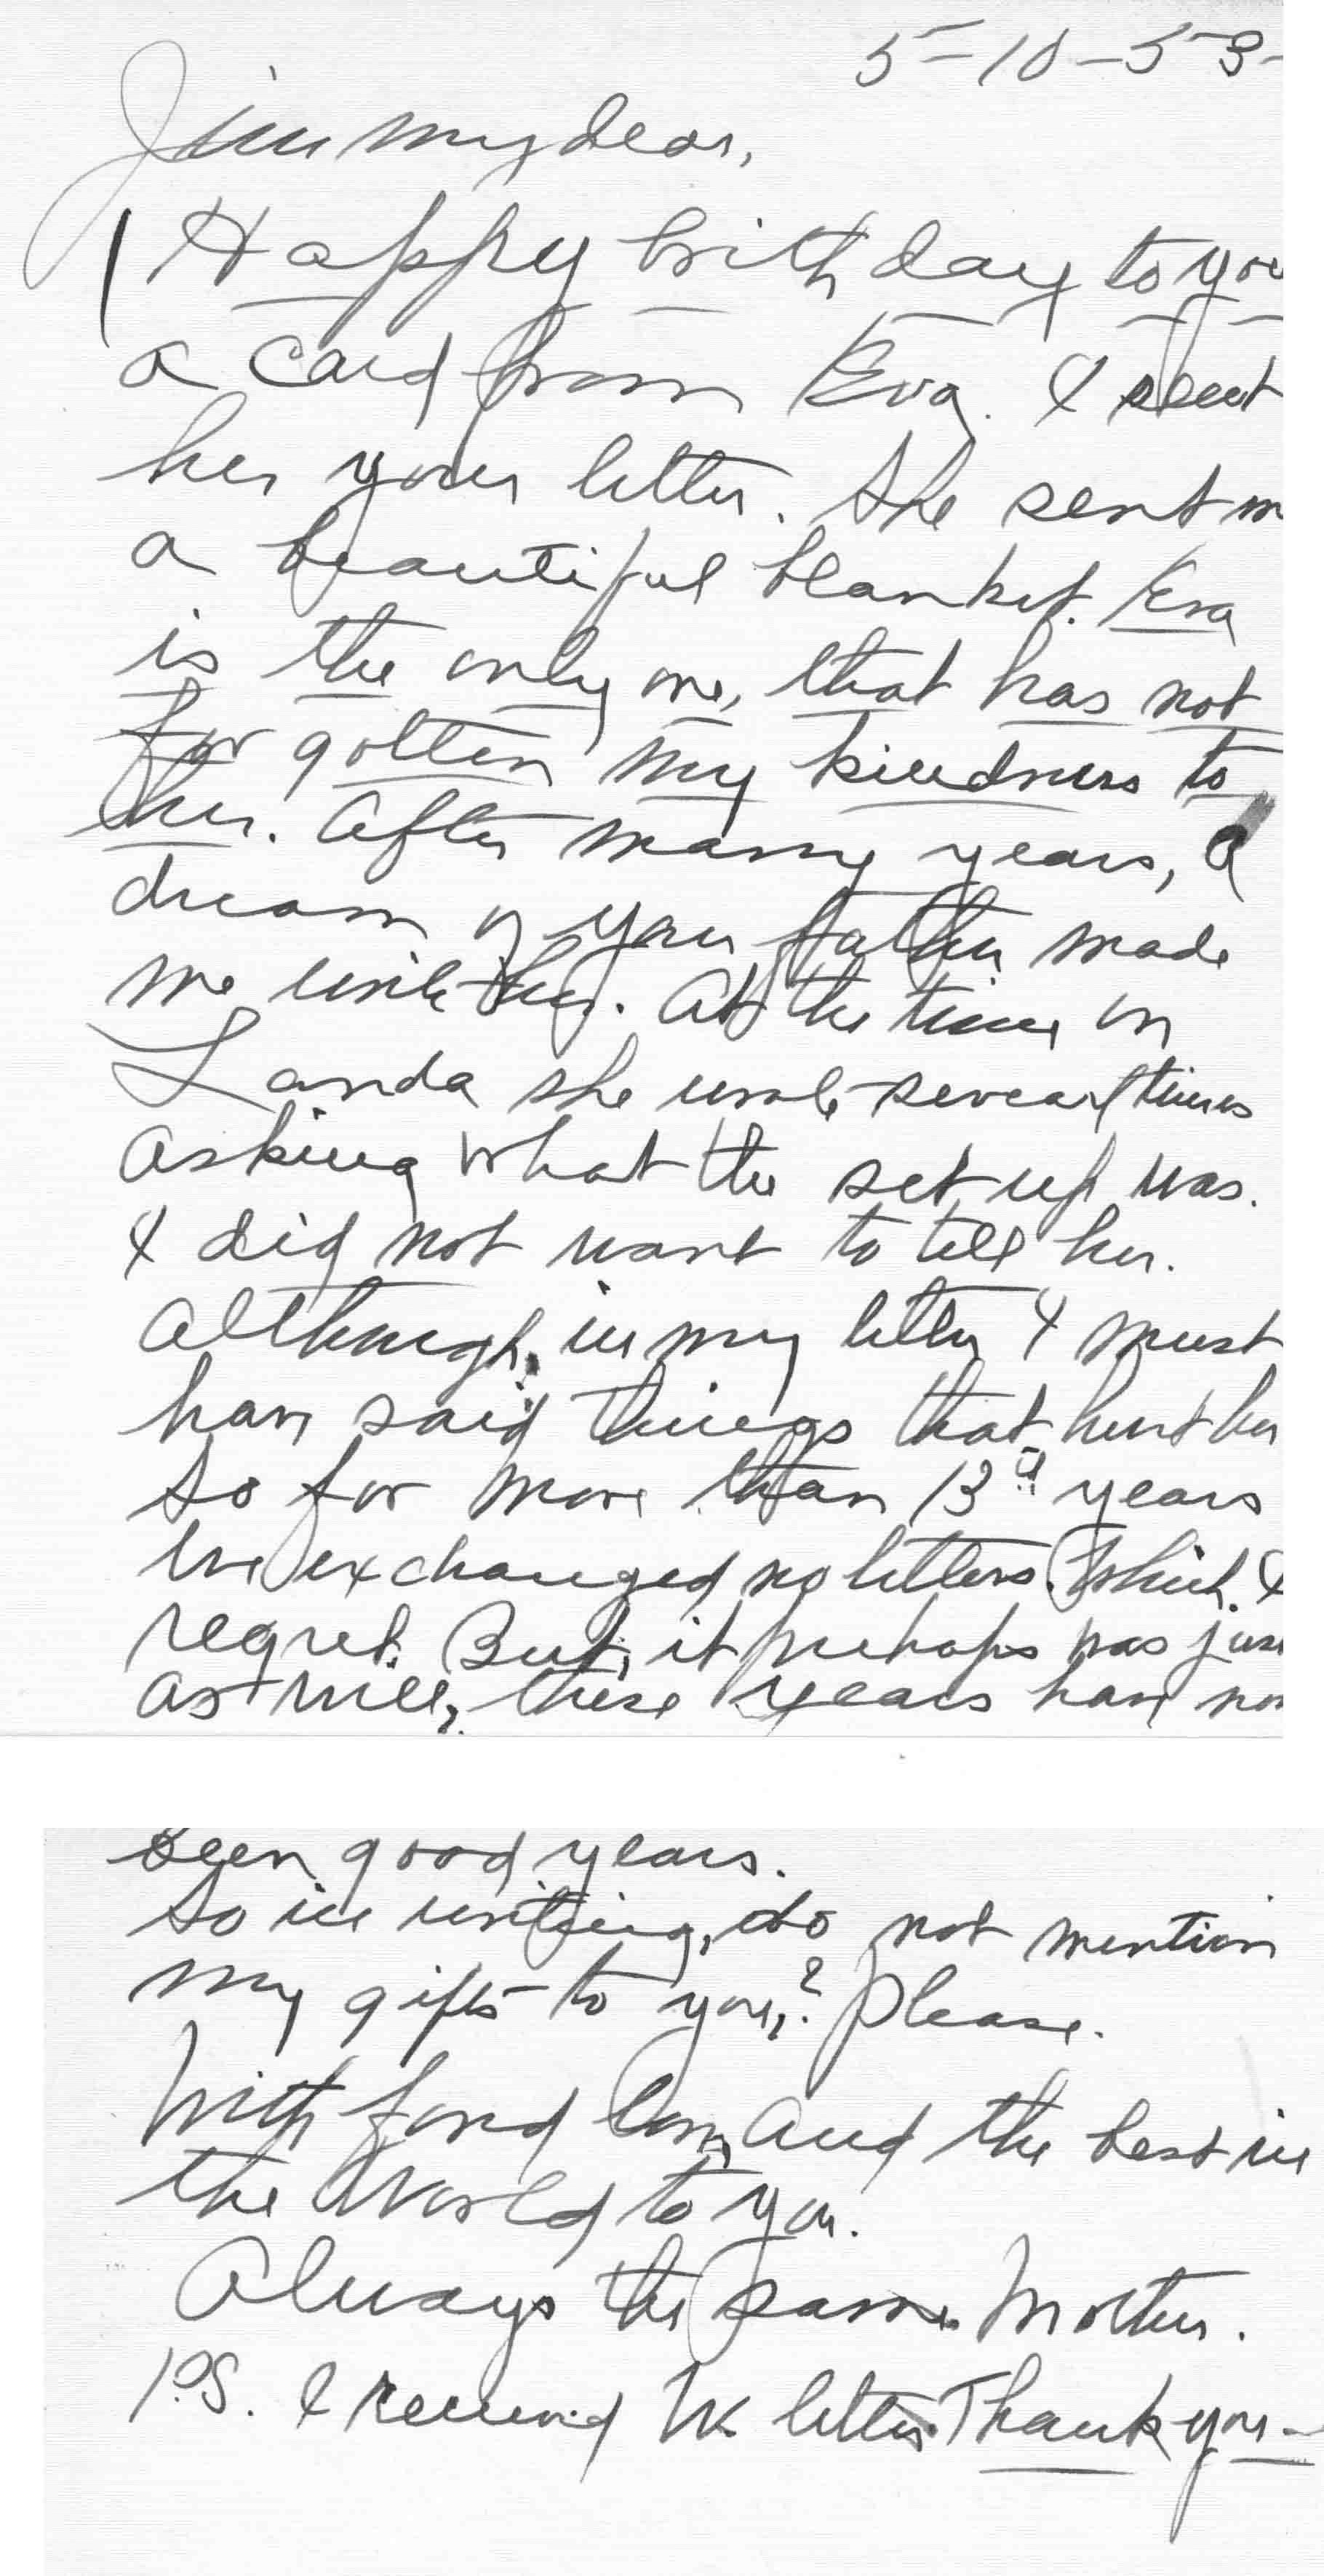 5-10-53-
Jim my dear,
Happy brithday to you
a card from Eva. I sent
her your letter. She sent m
a beautiful blanket. Eva
is the only one, that has not
for gotten my kindness to
her. After many years, a
dream of your father made
me write her. At the time on
Landa she wrote several times
asking what the set up was.
I did not want to tell her.
Although, in my letter I must
have said things that hurt her
so for more than 13 years
we exchanged no letters. Which I
regret. But, it perhaps was jus
as well, these years have no
been good years.
So in writing, do not mention
my gifts to you,? Please.
With fond love, and the best in
the World to you.
Always the same. Mother.
P.S. I received letter Thank you -